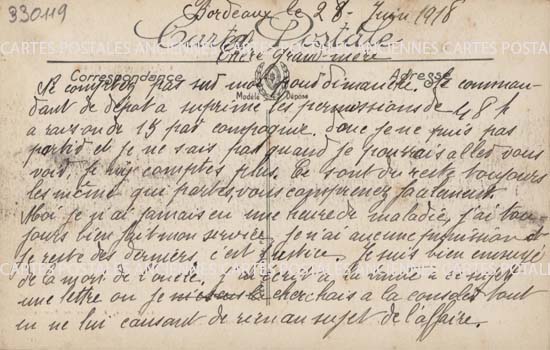 330119
Bordeaux le 28 Juin 1918
Carte Postale
Chère Grand-mère
Correspondance
Adresse
Modèle Déposé
Ne comptez pas sur moi pour dimanche. Le comman-
dant de dépot a suprimé les permissions de 48 h
a raison de 15 par compagnie. donc je ne puis pas
partir et je ne sais pas quand je pourrais aller vous
voir, je n'y comptes plus. Ce sont du reste toujours
les même qui partes, vous comprenez
Moi je n'ai jamais eu une heure de maladie, j'ai tou-
jours bien fait mon service, je n'ai aucune punission et
je reste des derniers, c'est justice. Je suis bien ennuyé
de la mort de l'oncle. J'ai écrit a
une lettre ou je cherchais a la consoler tout
en ne lui causant de rien au sujet de l'affaire.
CARTES POSTALES ANCIENNES